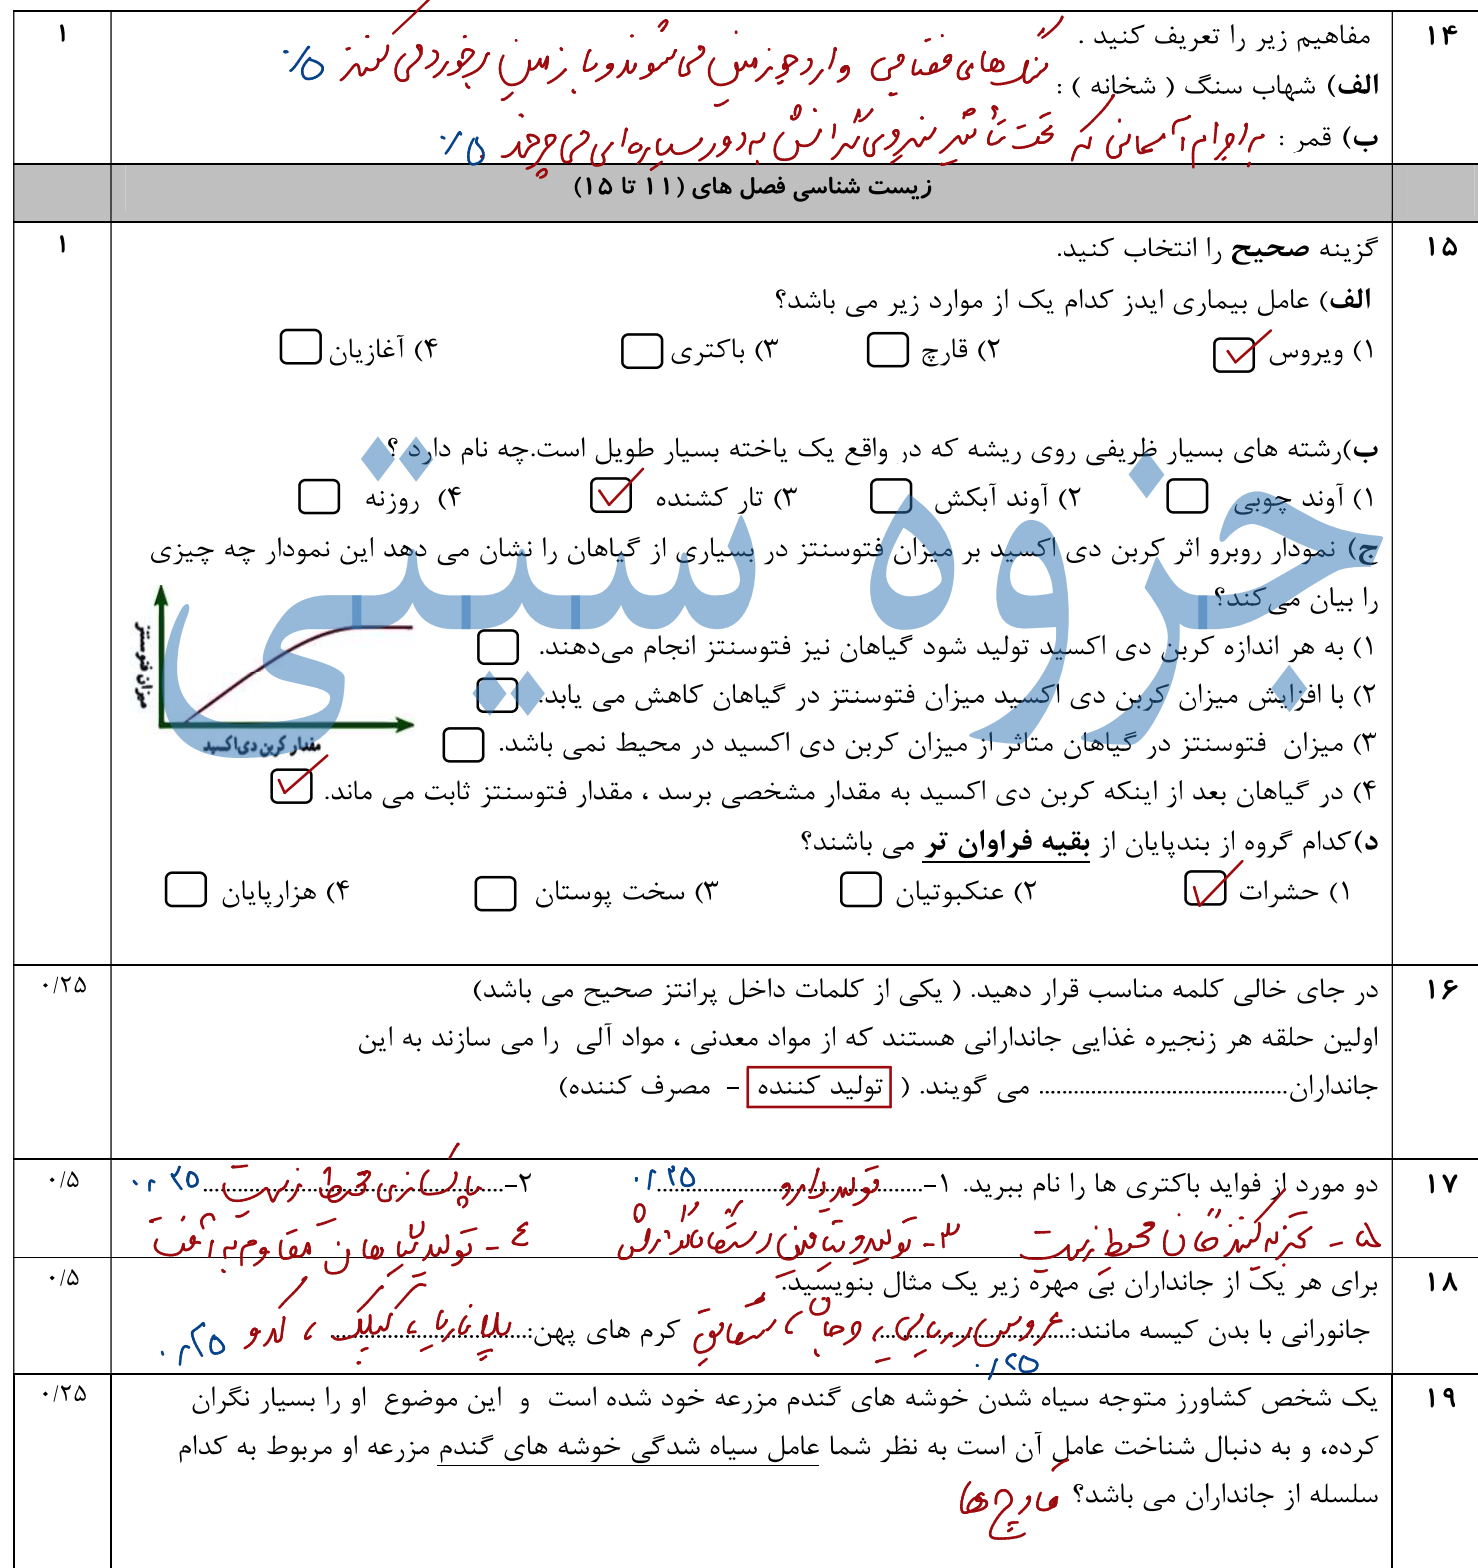 ۱۴ مفاهیم زیر را تعریف کنید . ۱
الف) شهاب سنگ ( شخانه ) : سنگ های فضایی وارد جو زمین می شوند و با زمین برخورد می کنند ۰/۵
ب) قمر : به اجرام آسمانی که تحت تأثیر نیروی گرانش به دور سیاره ای می چرخند ۰/۵
زیست شناسی فصل های (۱۱ تا ۱۵)
۱۵ گزینه صحیح را انتخاب کنید. ۱
الف) عامل بیماری ایدز کدام یک از موارد زیر می باشد؟
۱) ویروس ۲) قارچ ۳) باکتری ۴) آغازیان
ب)رشته های بسیار ظریفی روی ریشه که در واقع یک یاخته بسیار طویل است.چه نام دارد ؟
۱) آوند چوبی ۲) آوند آبکش ۳) تار کشنده ۴) روزنه
ج) نمودار روبرو اثر کربن دی اکسید بر میزان فتوسنتز در بسیاری از گیاهان را نشان می دهد این نمودار چه چیزی
را بیان می‌کند؟
میزان فتوسنتز
مقدار کربن دی‌اکسید
۱) به هر اندازه کربن دی اکسید تولید شود گیاهان نیز فتوسنتز انجام می‌دهند.
۲) با افزایش میزان کربن دی اکسید میزان فتوسنتز در گیاهان کاهش می یابد.
۳) میزان فتوسنتز در گیاهان متاثر از میزان کربن دی اکسید در محیط نمی باشد.
۴) در گیاهان بعد از اینکه کربن دی اکسید به مقدار مشخصی برسد ، مقدار فتوسنتز ثابت می ماند.
د)کدام گروه از بندپایان از بقیه فراوان تر می باشند؟
۱) حشرات ۲) عنکبوتیان ۳) سخت پوستان ۴) هزارپایان
جزوه سیتی
۱۶ در جای خالی کلمه مناسب قرار دهید. ( یکی از کلمات داخل پرانتز صحیح می باشد) ۰/۲۵
اولین حلقه هر زنجیره غذایی جاندارانی هستند که از مواد معدنی ، مواد آلی را می سازند به این
جانداران........................................... می گویند. ( تولید کننده – مصرف کننده)
۱۷ دو مورد از فواید باکتری ها را نام ببرید. ۱- تولید دارو ۰/۲۵ ۲- پاکسازی محیط زیست ۰/۲۵ ۰/۵
۳- تولید ویتامین در دستگاه گوارش ۴- تولید گیاهان مقاوم به آفت ۵- تجزیه کنندگان محیط زیست
۱۸ برای هر یک از جانداران بی مهره زیر یک مثال بنویسید. ۰/۵
جانورانی با بدن کیسه مانند: عروس دریایی ، مرجان ، شقایق ۰/۲۵ کرم های پهن: پلاناریا ، کپلک ، کدو ۰/۲۵
۱۹ یک شخص کشاورز متوجه سیاه شدن خوشه های گندم مزرعه خود شده است و این موضوع او را بسیار نگران ۰/۲۵
کرده، و به دنبال شناخت عامل آن است به نظر شما عامل سیاه شدگی خوشه های گندم مزرعه او مربوط به کدام
سلسله از جانداران می باشد؟ قارچ ها